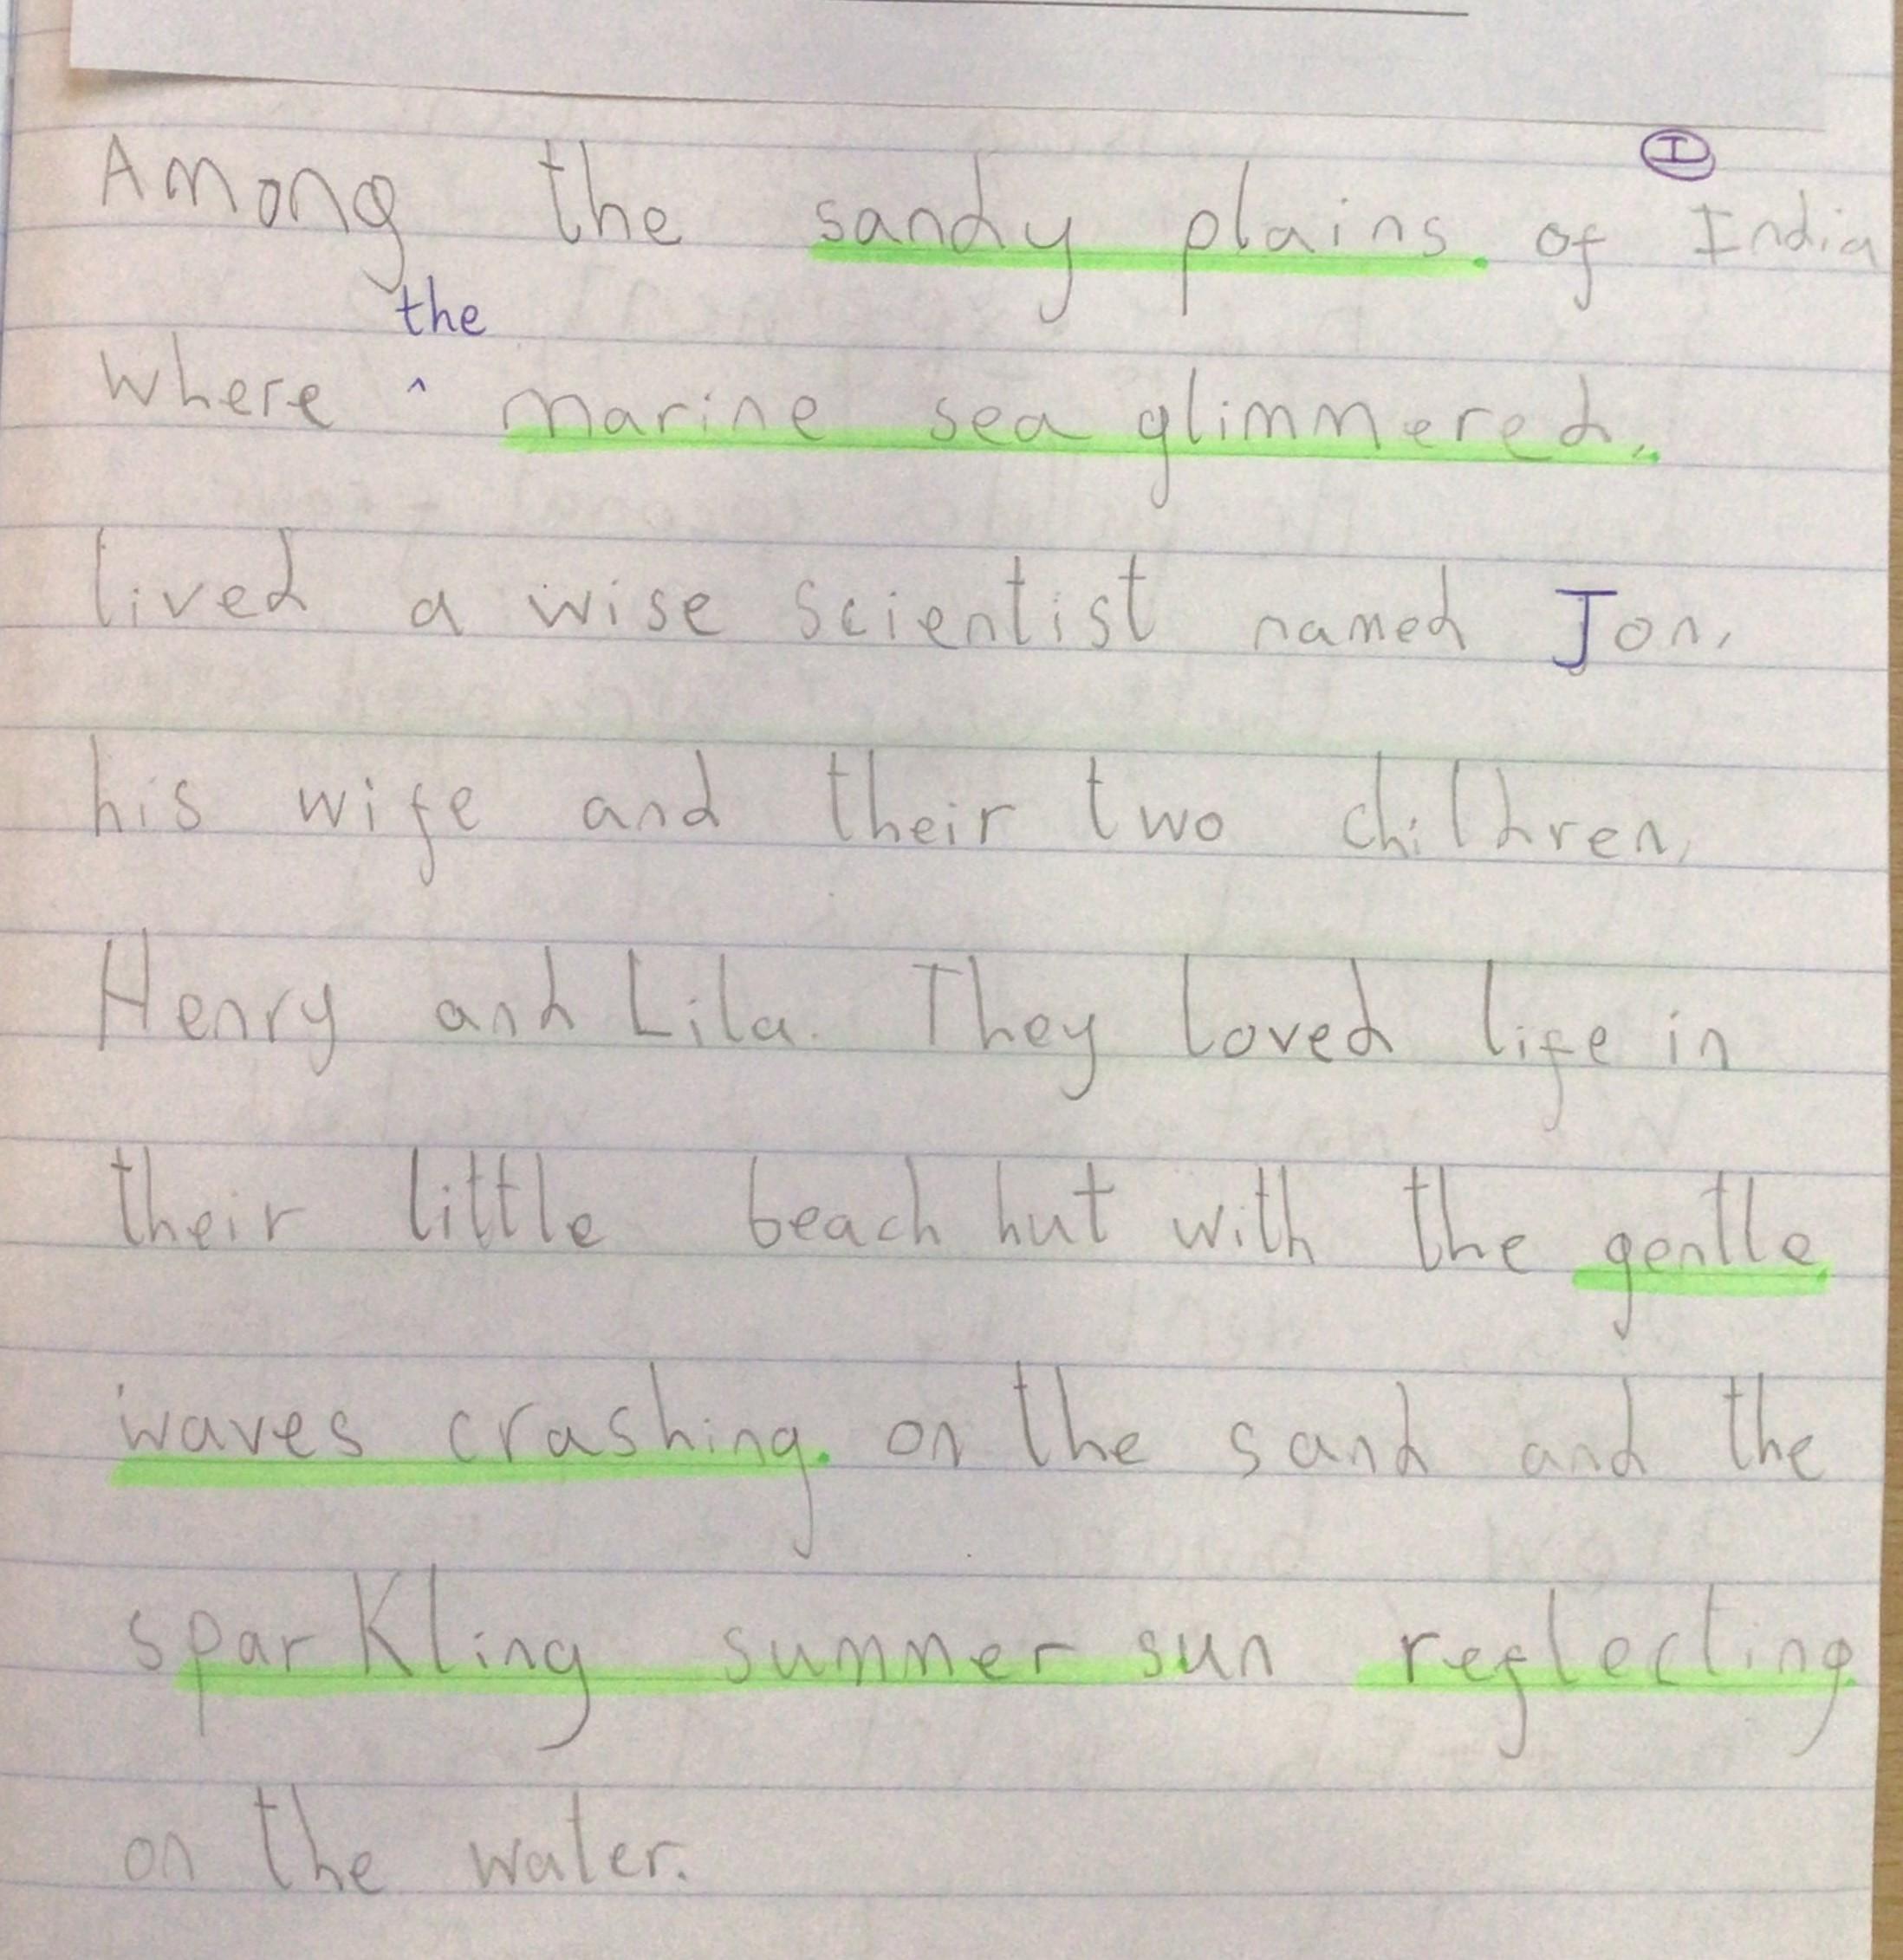 I
Among the sandy plains of India
the
where ^ marine sea glimmered,
lived a wise scientist named Jon,
his wife and their two children,
Henry and Lila. They loved life in
their little beach hut with the gentle
waves crashing on the sand and the
sparkling summer sun reflecting
on the water.